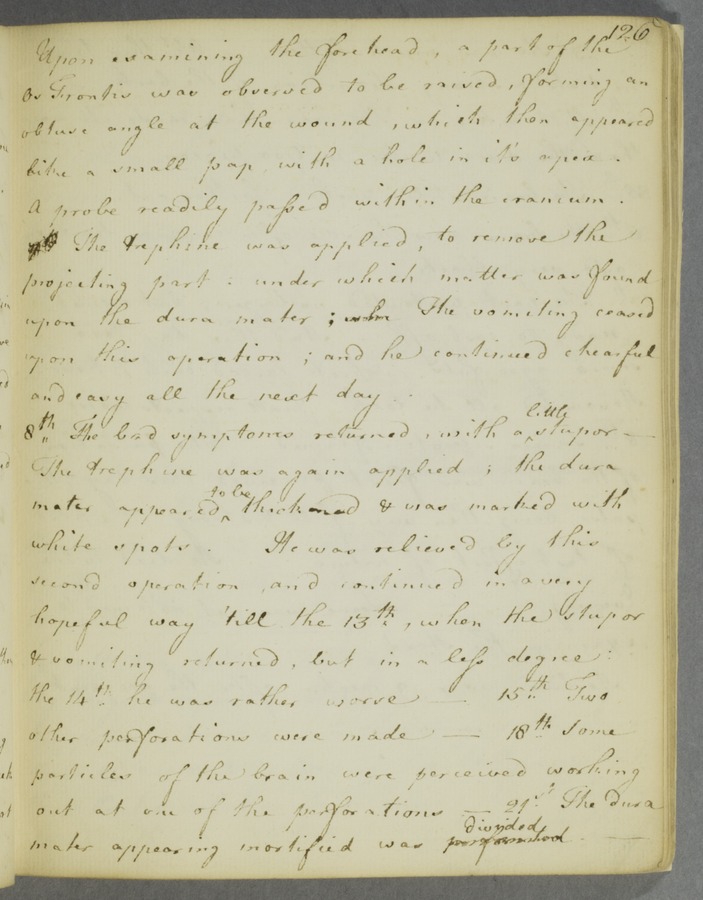 126
Upon examining the forehead, a part of the
Os Frontis was observed to be raised, forming an
obtuse angle at the wound, which then appeared
like a small pap with a hole in it's apex.
A probe readily passed within the cranium.
The trephine was applied, to remove the
projecting part: under which matter was found
upon the dura mater; The vomiting ceased
upon this operation; and he continued chearful
and easy all the next day.
8th The bad symptoms returned, with a little stupor —
The trephine was again applied; the dura
mater appeared to be thickened & was marked with
white spots. He was relieved by this
second operation, and continued in a very
hopeful way 'till the 13th, when the stupor
& vomiting returned, but in a less degree:
the 14th he was rather worse — 15th Two
other perforations were made — 18th Some
particles of the brain were perceived working
out at one of the perforations — 21st The dura
mater appearing mortified was divided —